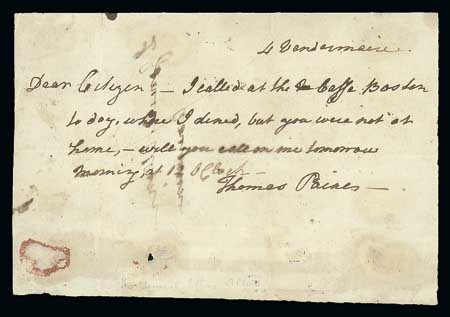 4 Vendermaire.
Dear Citizen — I called at the Caffe Boston
to day, where I dined, but you were not at
home, — will you call on me tomorrow
morning at 12 OClock —
Thomas Paine —